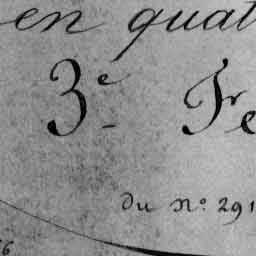 en quat
3e Fe
du No. 291
6